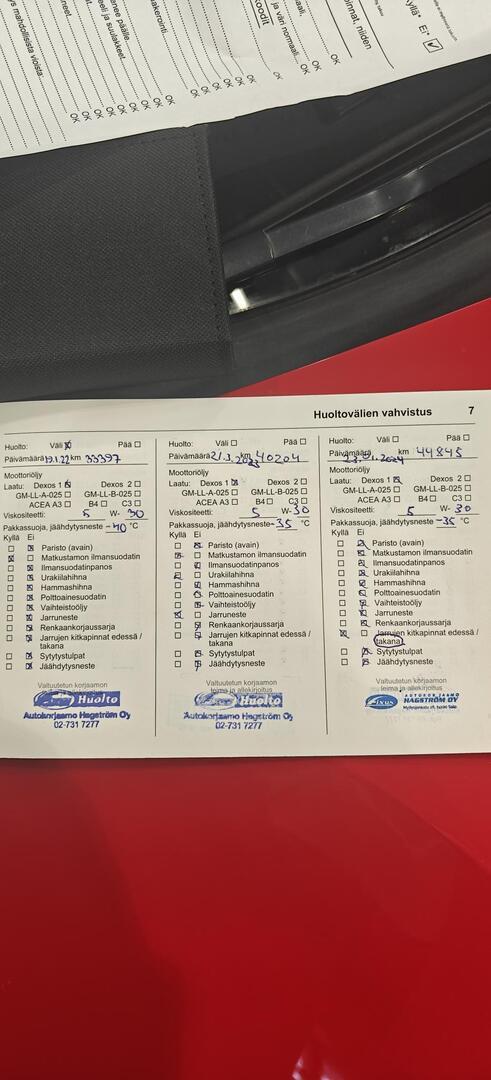 kyllä* Ei*
oinnat, niiden
ja vän normaali.
koodit
akerointi
enee päälle.
eeli ja suulakkeet.
neet.
s mahdollisista vioista
OK OK OK OK OK OK OK OK
OK OK OK OK OK OK
OK OK OK
Huoltovälien vahvistus 7
Huolto: Väli ☒ Pää ☐
Päivämäärä 19.1.22 km 33397
Moottoriöljy
Laatu: Dexos 1 ☒ Dexos 2 ☐
GM-LL-A-025 ☐ GM-LL-B-025 ☐
ACEA A3 ☐ B4 ☐ C3 ☐
Viskositeetti: 5 W- 30
Pakkassuoja, jäähdytysneste -40 °C
Kyllä Ei
☐ ☒ Paristo (avain)
☒ ☐ Matkustamon ilmansuodatin
☐ ☒ Ilmansuodatinpanos
☐ ☒ Urakiilahihna
☐ ☒ Hammashihna
☐ ☒ Polttoainesuodatin
☐ ☒ Vaihteistoöljy
☐ ☒ Jarruneste
☐ ☒ Renkaankorjaussarja
☐ ☒ Jarrujen kitkapinnat edessä /
takana
☐ ☒ Sytytystulpat
☐ ☒ Jäähdytysneste
Valtuutetun korjaamon
Huolto
Autokorjaamo Hagström Oy
02-731 7277
Huolto: Väli ☐ Pää ☐
Päivämäärä 21.3.2023 km 40204
Moottoriöljy
Laatu: Dexos 1 ☒ Dexos 2 ☐
GM-LL-A-025 ☐ GM-LL-B-025 ☐
ACEA A3 ☐ B4 ☐ C3 ☐
Viskositeetti: 5 W- 30
Pakkassuoja, jäähdytysneste -35 °C
Kyllä Ei
☐ ☒ Paristo (avain)
☒ ☐ Matkustamon ilmansuodatin
☐ ☒ Ilmansuodatinpanos
☒ ☐ Urakiilahihna
☐ ☒ Hammashihna
☐ ☒ Polttoainesuodatin
☐ ☒ Vaihteistoöljy
☒ ☐ Jarruneste
☐ ☒ Renkaankorjaussarja
☐ ☒ Jarrujen kitkapinnat edessä /
takana
☐ ☒ Sytytystulpat
☐ ☒ Jäähdytysneste
Valtuutetun korjaamon
leima ja allekirjoitus
Huolto
Autokorjaamo Hagström Oy
02-731 7277
Huolto: Väli ☐ Pää ☐
Päivämäärä 2024 km 44845
Moottoriöljy
Laatu: Dexos 1 ☒ Dexos 2 ☐
GM-LL-A-025 ☐ GM-LL-B-025 ☐
ACEA A3 ☐ B4 ☐ C3 ☐
Viskositeetti: 5 W- 30
Pakkassuoja, jäähdytysneste -35 °C
Kyllä Ei
☐ ☒ Paristo (avain)
☐ ☒ Matkustamon ilmansuodatin
☐ ☒ Ilmansuodatinpanos
☐ ☒ Urakiilahihna
☐ ☒ Hammashihna
☐ ☒ Polttoainesuodatin
☐ ☒ Vaihteistoöljy
☐ ☒ Jarruneste
☐ ☒ Renkaankorjaussarja
☒ ☐ Jarrujen kitkapinnat edessä /
takana
☐ ☒ Sytytystulpat
☐ ☒ Jäähdytysneste
Valtuutetun korjaamon
leima ja allekirjoitus
Fixus AUTOKORJAAMO
HAGSTRÖM OY